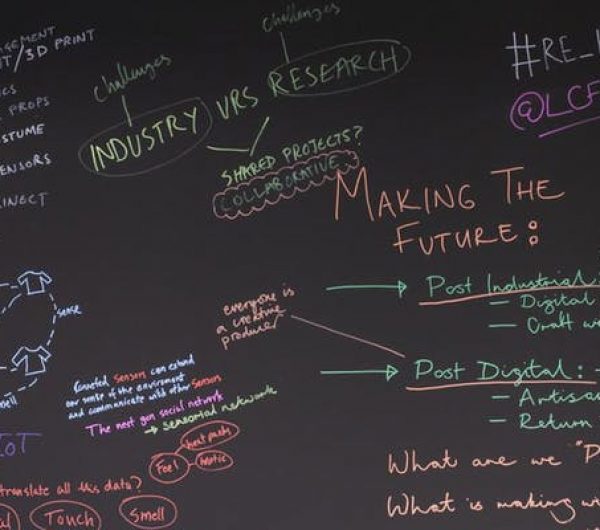 T/3D PRINT
PROPS
challenges
challenges
INDUSTRY VRS RESEARCH
SHARED PROJECTS?
COLLABORATIVE
#RE_
@LCF
MAKING THE
FUTURE:
Post Industrial:
– Digital
– Craft
everyone is
a creative
producer
Post Digital: –
– Artisa
– Return
sense
smell
IOT
Sensors can extend
our sense of the environment
and communicate with other sensors
The next gen social network
→ sensorial networks
Feel
heat pads
haptic
translate all this data?
Touch
Smell
What are we "D
What is making wi